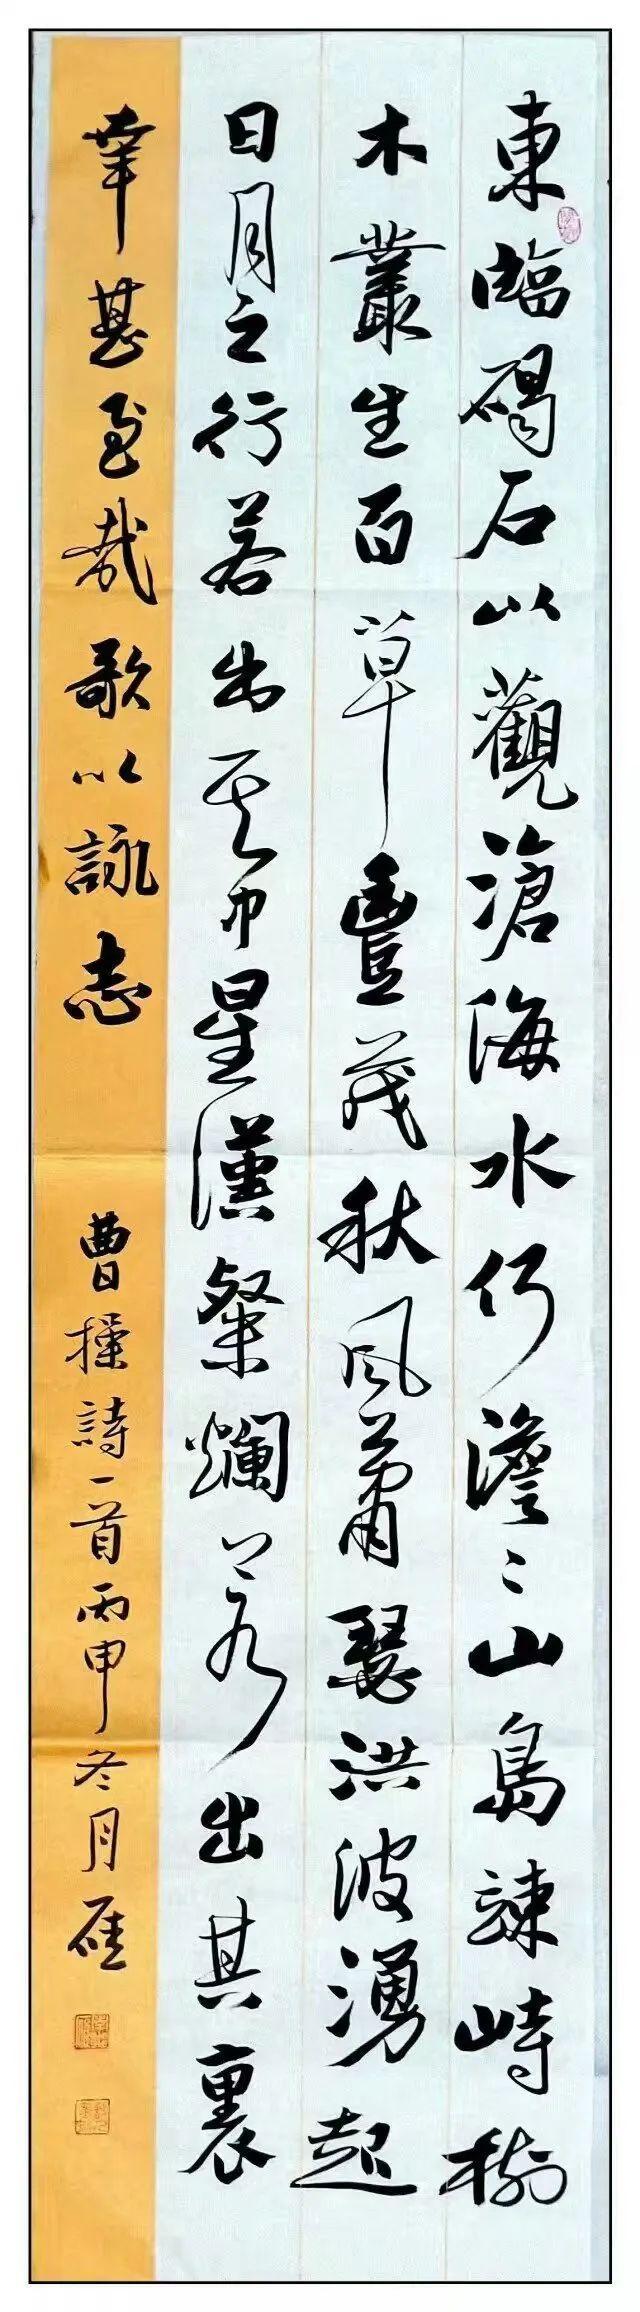 東臨碣石以觀滄海水何澹〻山島竦峙樹
木叢生百草豐茂秋風蕭瑟洪波湧起
日月之行若出其中星漢粲爛若出其裏
幸甚至哉歌以詠志 曹操詩一首丙申冬月